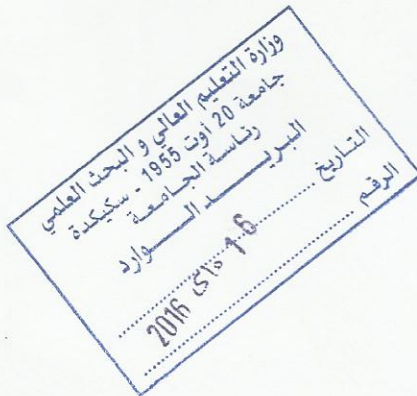 وزارة التعليم العالي و البحث العلمي
جامعة 20 أوت 1955 - سكيكدة
رئاسة الجامعة
البريــد الــوارد
التاريخ 16 ماي 2016
الرقم